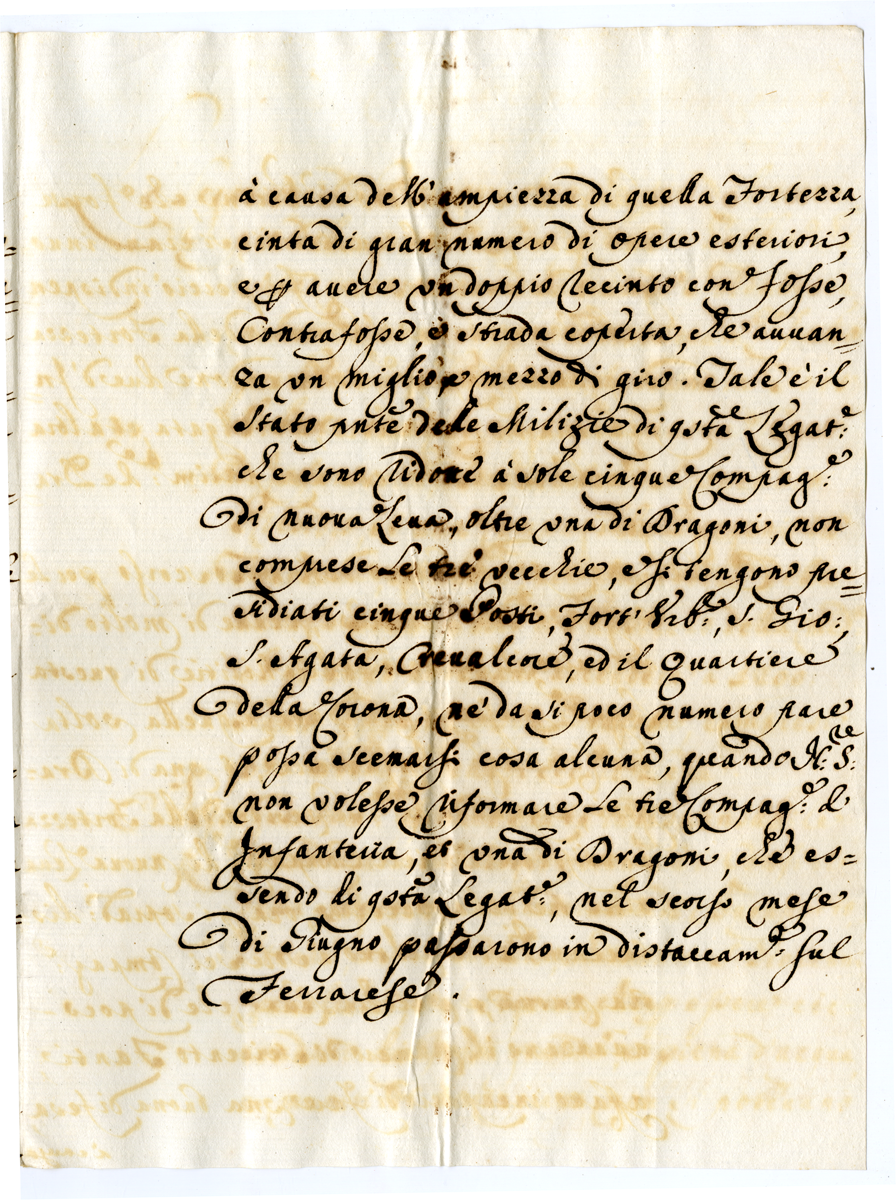 à causa dell'ampiezza di quella Fortezza,
cinta di gran numero di opere esteriori,
e p avere un doppio recinto con fosse,
Contrafosse, e strada coperta, che avvan=
za un miglio e mezzo di giro. Tale è il
Stato pnte delle Milizie di qsta Legat.e
che sono ridotte à sole cinque Compag.e
di nuova Leva, oltre una di Dragoni, non
comprese le tre vecchie, e si tengono pre=
sidiati cinque Posti, Fort' Urb.o, S. Gio:,
S. Agata, Crevalcore, ed il Quartiere
della Corona, nè da si poco numero pare
possa scemarsi cosa alcuna, quando N.S.re
non volesse riformare le tre Compag.e di
Infanteria, et una di Dragoni, che es=
sendo di qsta Legat.e, nel scorso mese
di Giugno passarono in distaccam.o sul
Ferrarese.